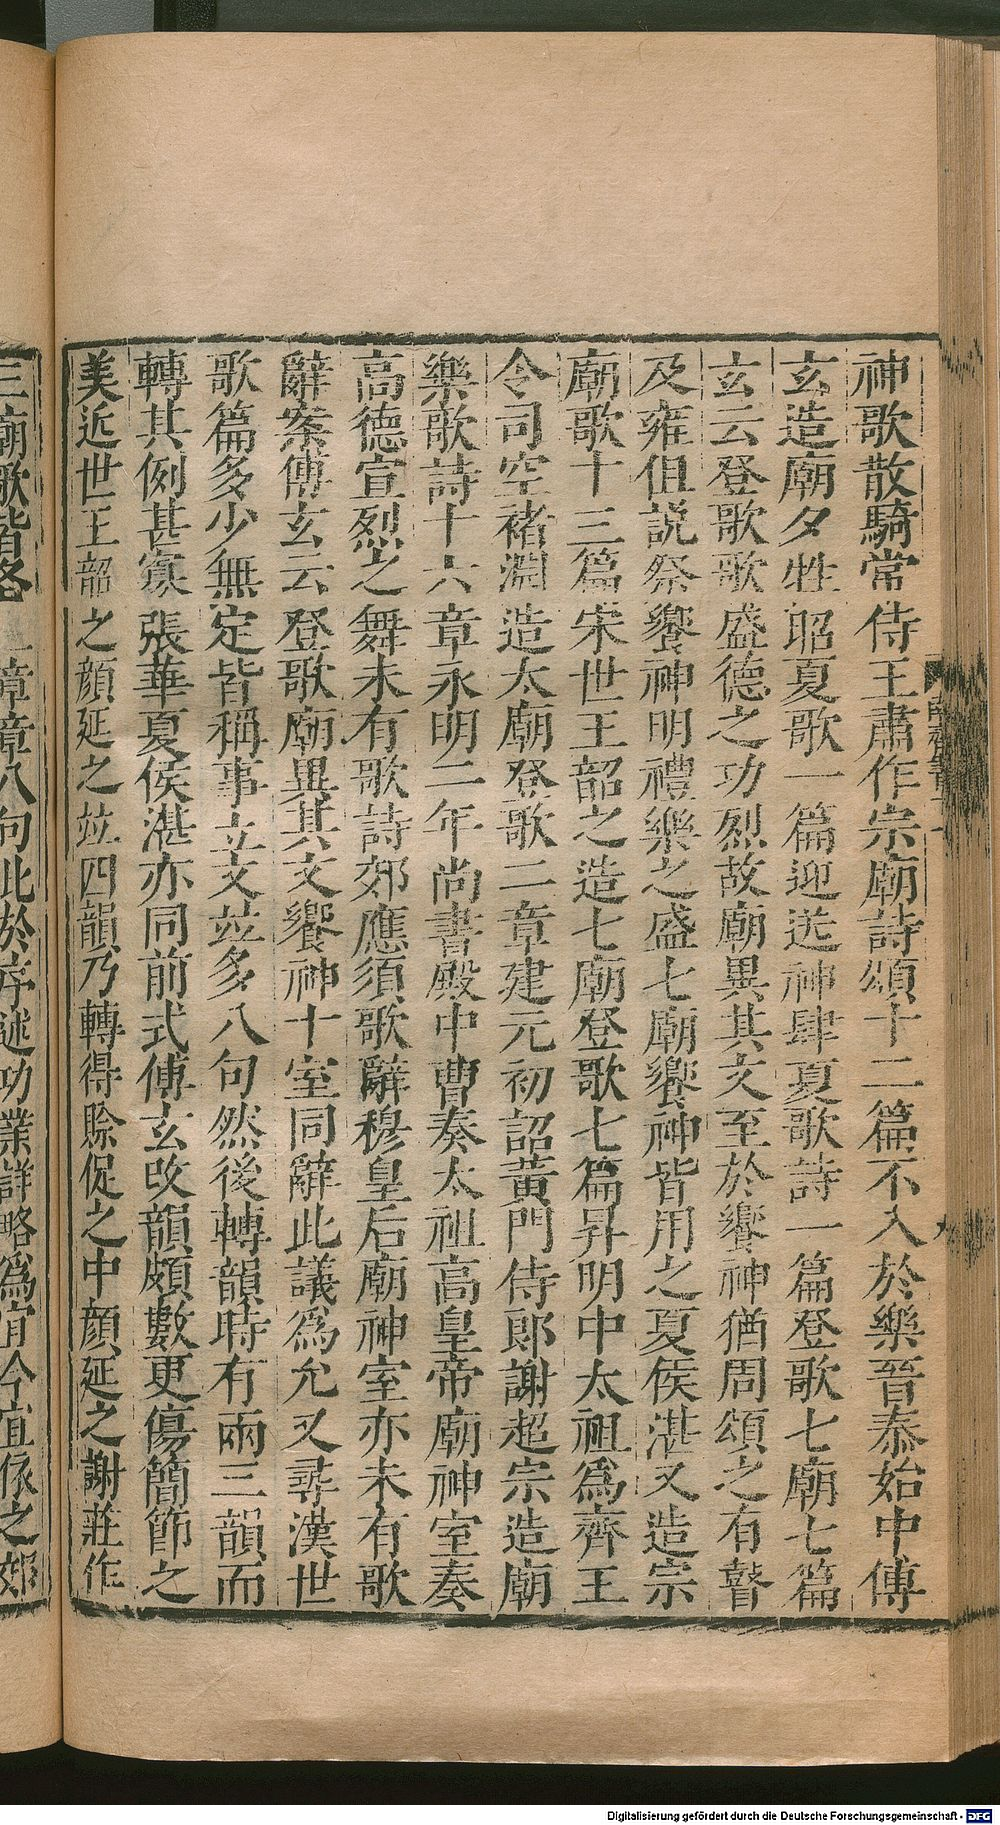 神歌散騎常侍王肅作宗廟詩頌十二篇不入於樂晉泰始中傅
玄造廟夕牲昭夏歌一篇迎送神肆夏歌詩一篇登歌七廟七篇
玄云登歌歌盛德之功烈故廟異其文至於饗神猶周頌之有瞽
及雍但説祭饗神明禮樂之盛七廟饗神皆用之夏侯湛又造宗
廟歌十三篇宋世王韶之造七廟登歌七篇昇明中太祖爲齊王
令司空褚淵造太廟登歌二章建元初詔黃門侍郎謝超宗造廟
樂歌詩十六章永明二年尚書殿中曹奏太祖高皇帝廟神室奏
高德宣烈之舞未有歌詩郊應須歌辭穆皇后廟神室亦未有歌
辭案傅玄云登歌廟異其文饗神十室同辭此議爲允又尋漢世
歌篇多少無定皆稱事立文竝多八句然後轉韻時有兩三韻而
轉其例甚寡張華夏侯湛亦同前式傅玄改韻頗數更傷簡節之
美近世王韶之顔延之竝四韻乃轉得賒促之中顔延之謝莊作
三廟歌皆各
章章八句此於序述功業詳略爲宜今宜依之郊
Digitalisierung gefördert durch die Deutsche Forschungsgemeinschaft - DFG